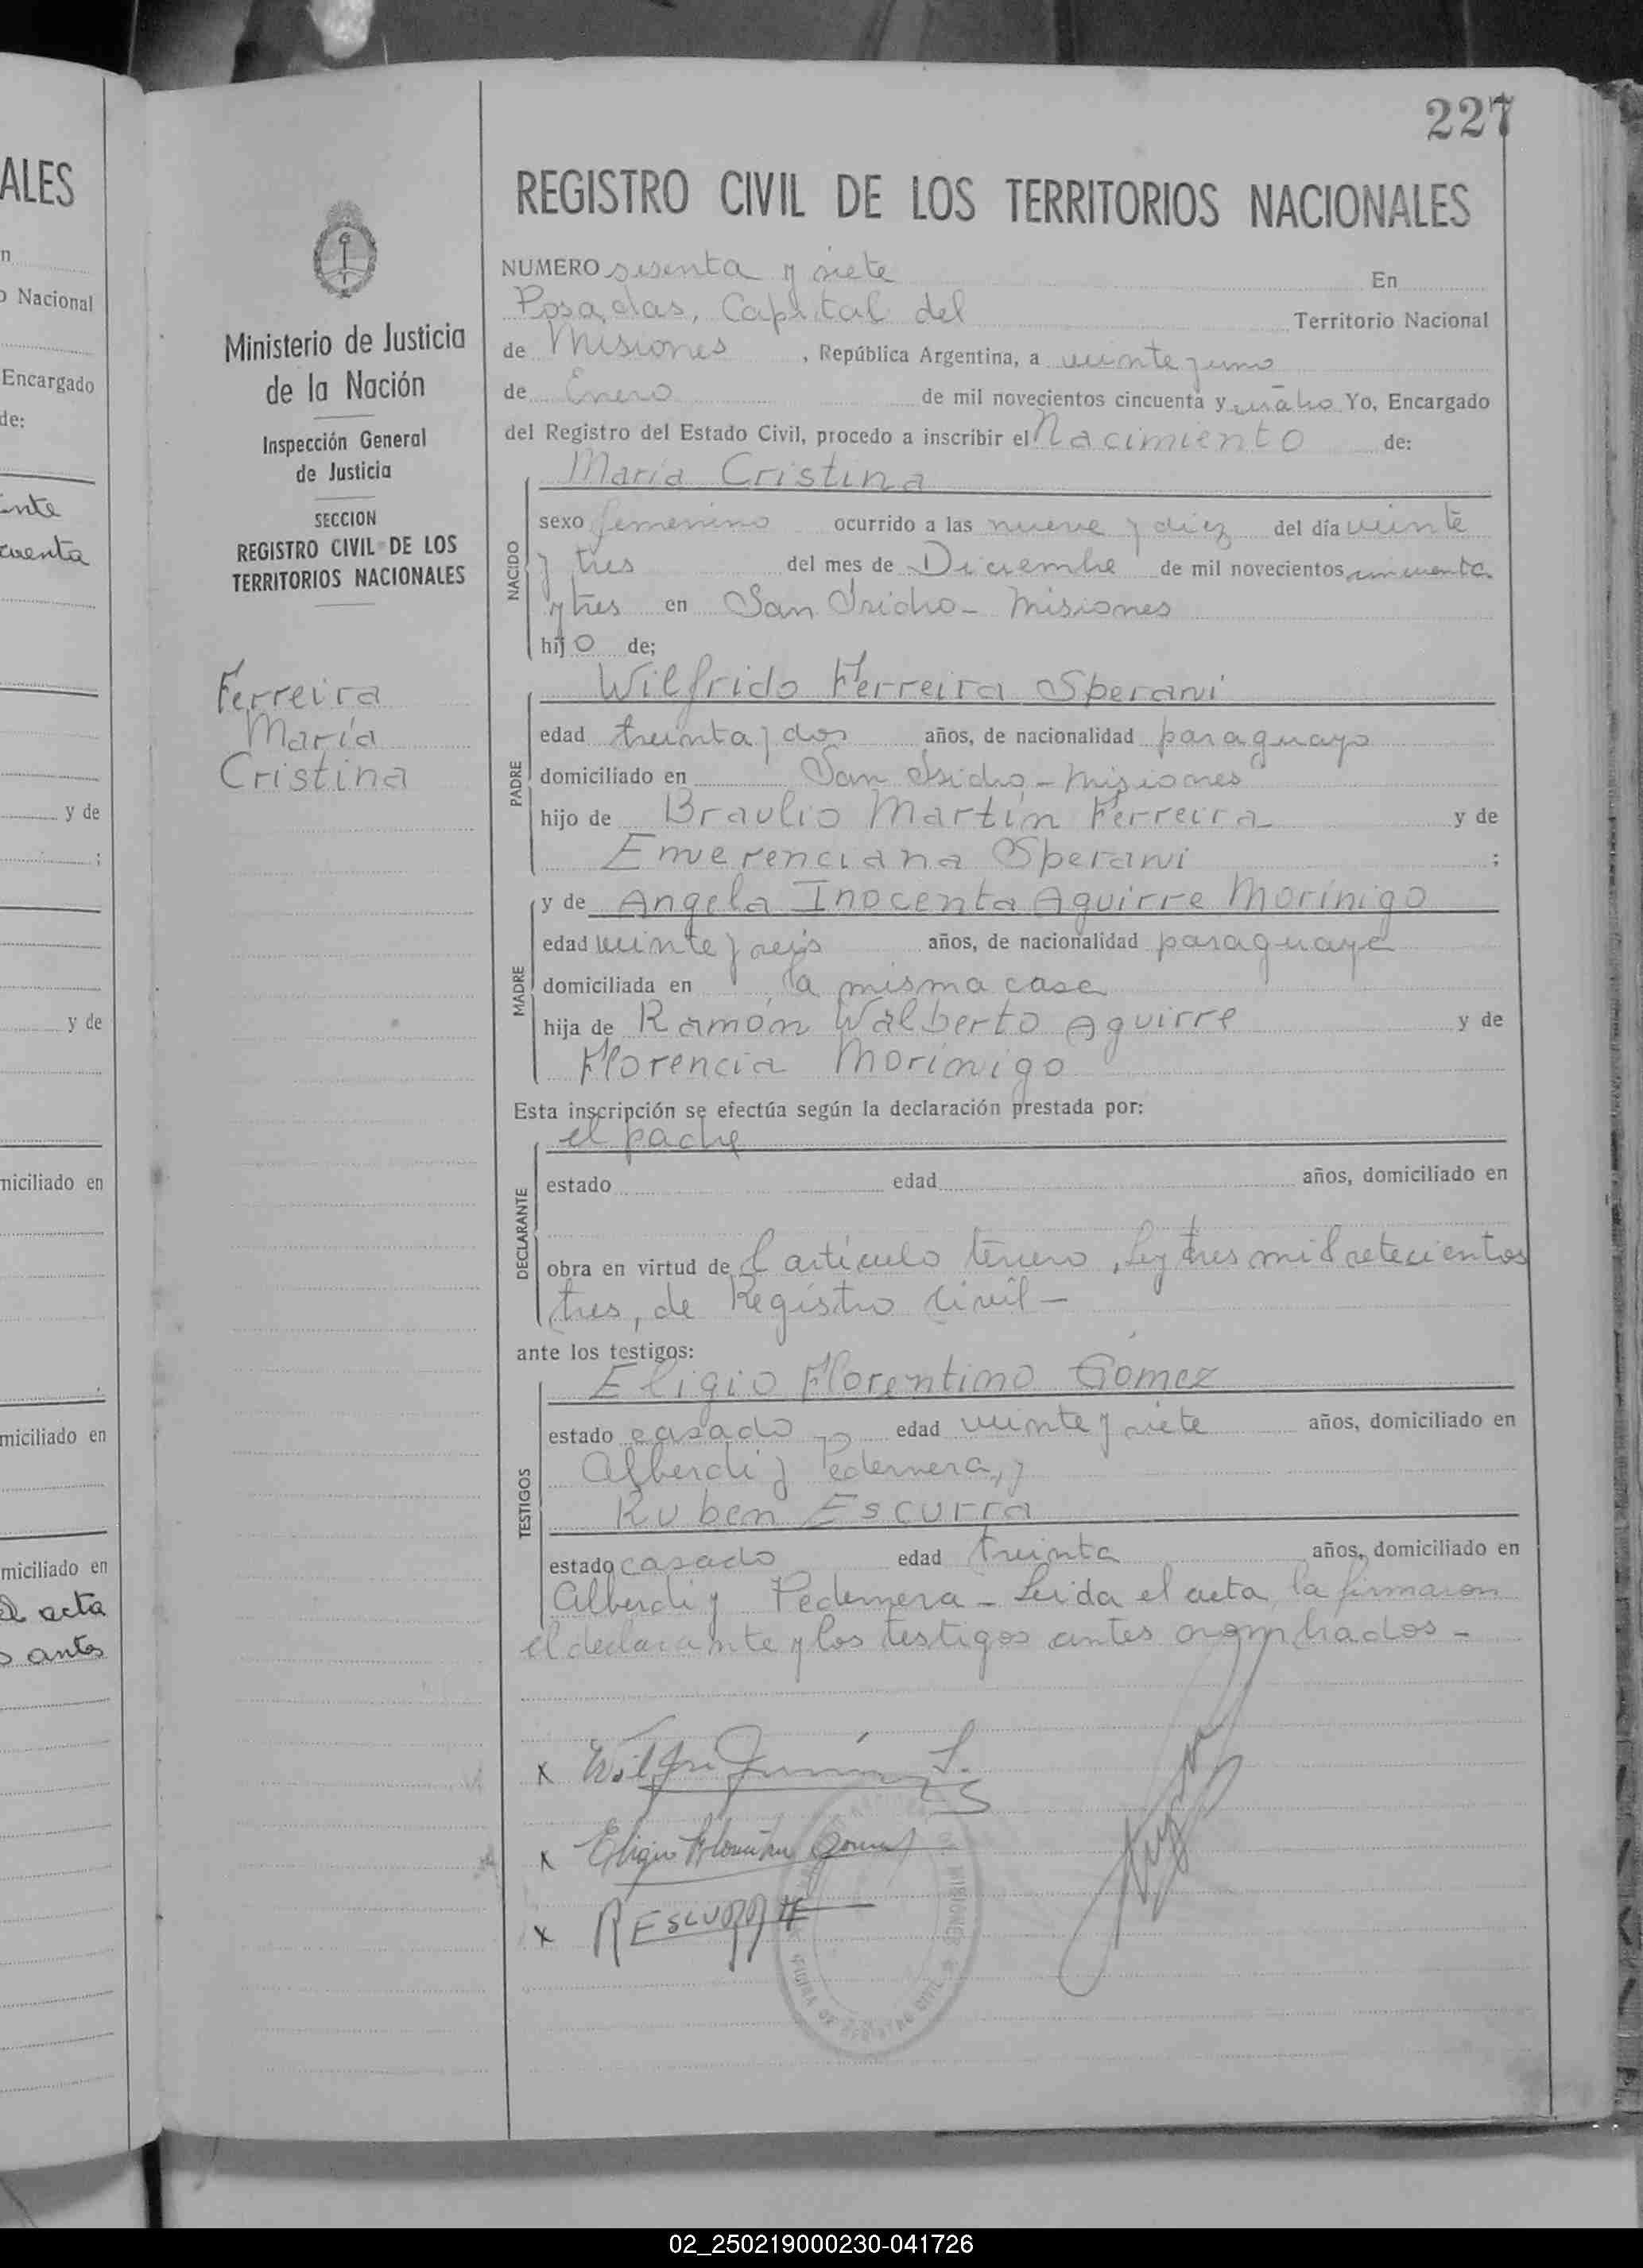 227
ALES
n
o Nacional
Encargado
de:
cuenta
y de
;
y de
miciliado en
miciliado en
miciliado en
acta
antes
Ministerio de Justicia
de la Nación
Inspección General
de Justicia
SECCION
REGISTRO CIVIL DE LOS
TERRITORIOS NACIONALES
Ferreira
María
Cristina
REGISTRO CIVIL DE LOS TERRITORIOS NACIONALES
NUMERO sesenta y siete En
Posadas, Capital del Territorio Nacional
de Misiones, República Argentina, a veinte y uno
de Enero de mil novecientos cincuenta y cuatro Yo, Encargado
del Registro del Estado Civil, procedo a inscribir el Nacimiento de:
María Cristina
NACIDO
sexo femenino ocurrido a las nueve y diez del día veinte
y tres del mes de Diciembre de mil novecientos cincuenta
y tres en San Isidro - Misiones
hijo de;
Wilfrido Ferreira Sperani
PADRE
edad treinta y dos años, de nacionalidad paraguayo
domiciliado en San Isidro - Misiones
hijo de Braulio Martín Ferreira y de
Emerenciana Sperani ;
y de Angela Inocenta Aguirre Morínigo
MADRE
edad veinte y seis años, de nacionalidad paraguaya
domiciliada en la misma casa
hija de Ramón Walberto Aguirre y de
Florencia Morínigo
Esta inscripción se efectúa según la declaración prestada por:
el padre
DECLARANTE
estado edad años, domiciliado en
obra en virtud del artículo tercero, Ley tres mil setecientos
tres, de Registro Civil -
ante los testigos:
Eligio Florentino Gomez
TESTIGOS
estado casado edad veinte y siete años, domiciliado en
Alberdi y Pedernera, y
Ruben Escurra
estado casado edad treinta años, domiciliado en
Alberdi y Pedernera - Leida el acta, la firmaron
el declarante y los testigos antes nombrados -
x
x Eligio Florentino Gomez
x R Escurra
MISIONES
02_250219000230-041726